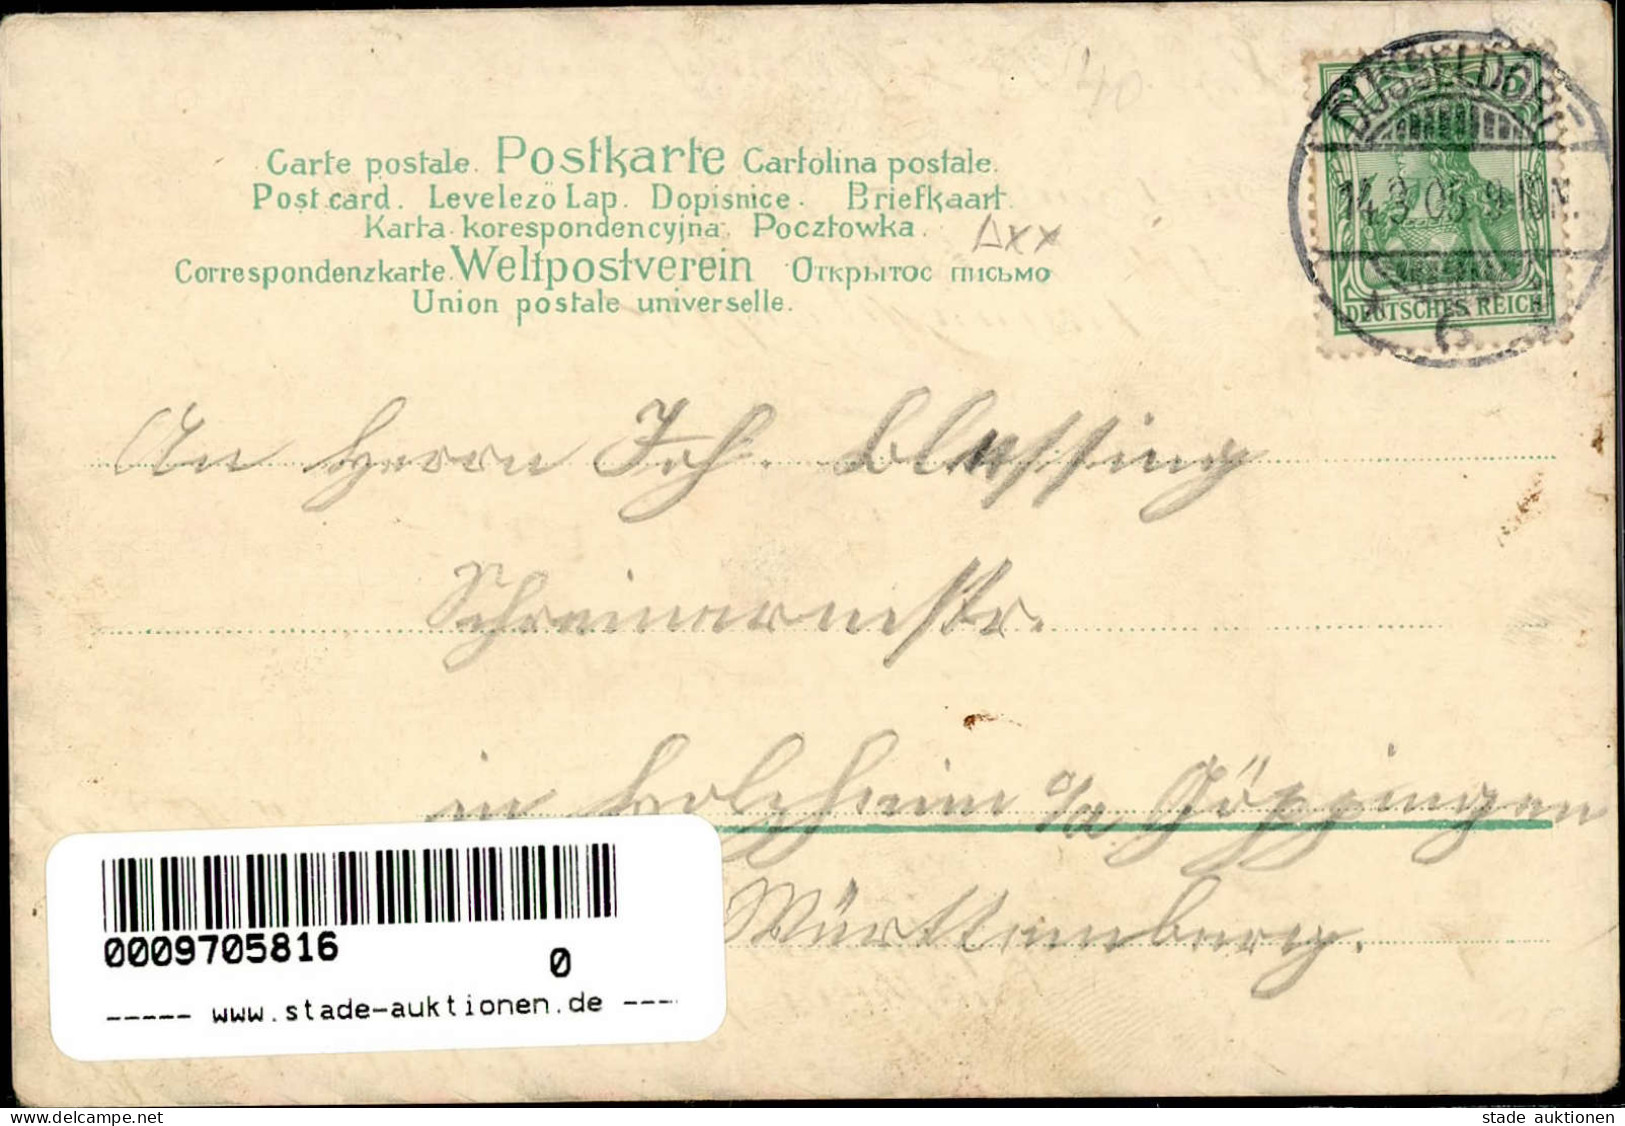 Carte postale. Postkarte Cartolina postale.
Post card. Levelezö Lap. Dopisnice. Briefkaart.
Karta korespondencyjna. Pocztowka.
Correspondenzkarte. Weltpostverein Открытос письмо
Union postale universelle.
40
Axx
DÜSSELDORF
14.3.05.9-10N.
* 6
DEUTSCHES REICH
An Herrn Joh. Blessing
Schreinermstr.
in Holzheim o/a Göppingen
Württemberg.
0009705816
0
----- www.stade-auktionen.de ----
www.delcampe.net
stade auktionen